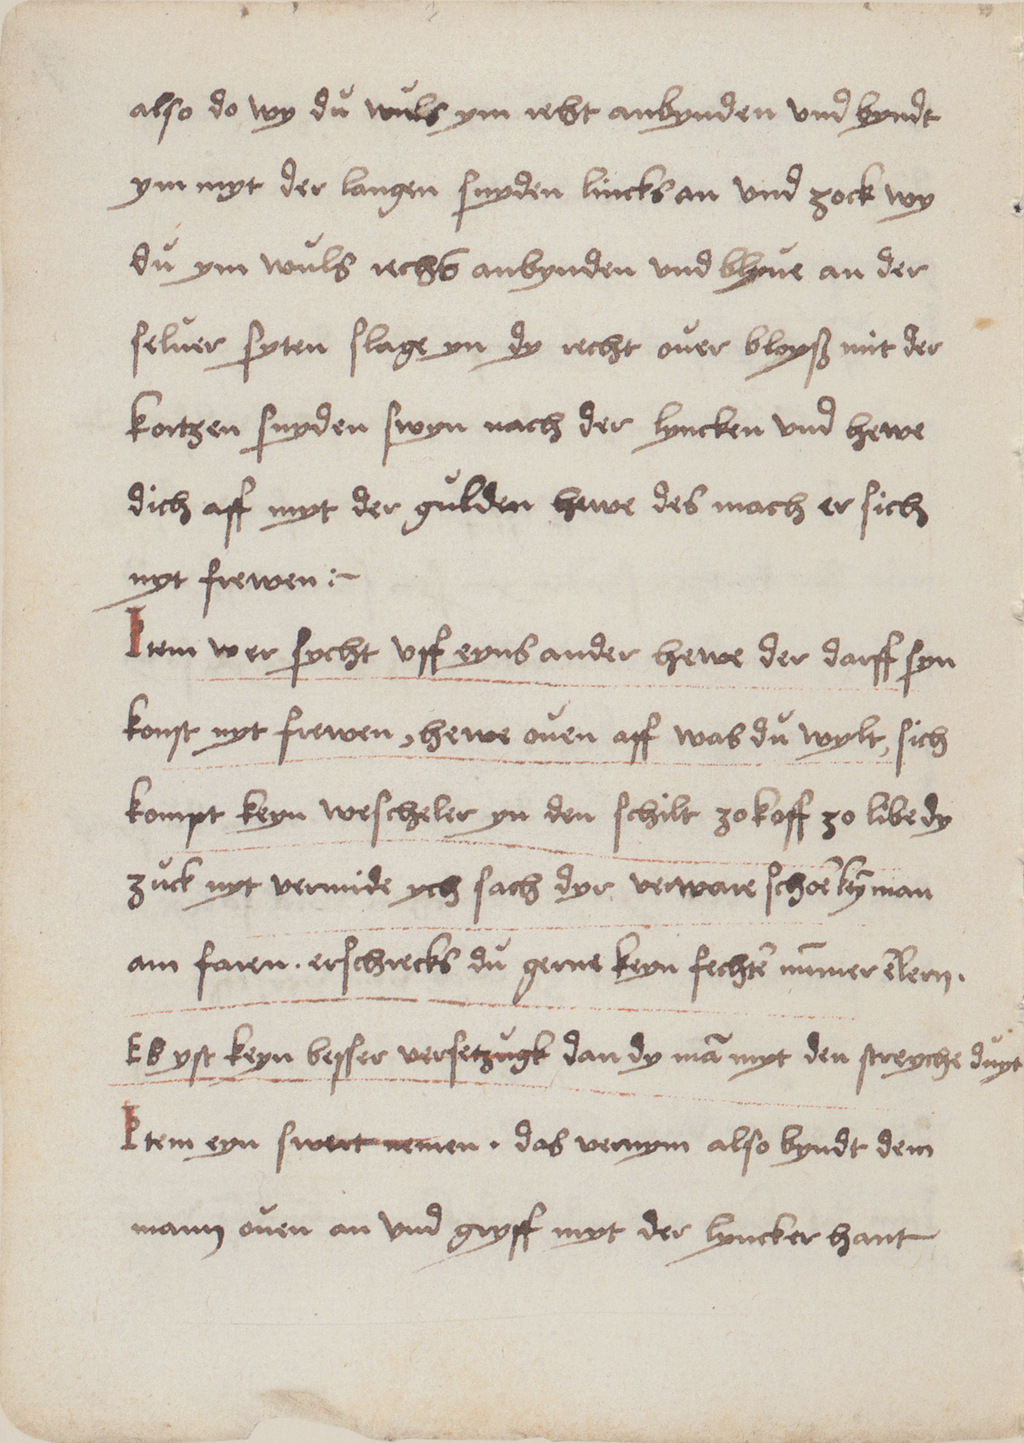 also do wy du wuls ym reht anbynden vnd byndt
ym myt der langen snyden lincks an vnd zock wy
du ym wuls rechts anbynden vnd blyue an der
seluer syten slage yn dy recht ouer bloyß mit der
kortzen snyden swyn nach der lyncken vnd hewe
dich aff myt der gulden hewe des mach er sich
nyt frewen :~
Item wer sycht vff eyns ander hewe der darff syn
konst nyt frewen, hewe ouen aff was du wylt, sich
kompt keyn wescheler yn den schilt zo koff zo libe dy
zuck nyt vermide ych sach dyr verware schoē keȳ man
am faren . erschrecks du gerne keyn fechtē nūmer ēlern .
Es yst keyn besser versetzugk dan dy mā myt den streyche duyt
Item eyn swert nemen . das vernym also byndt dem
mann ouen an vnd gryff myt der lyncker hant